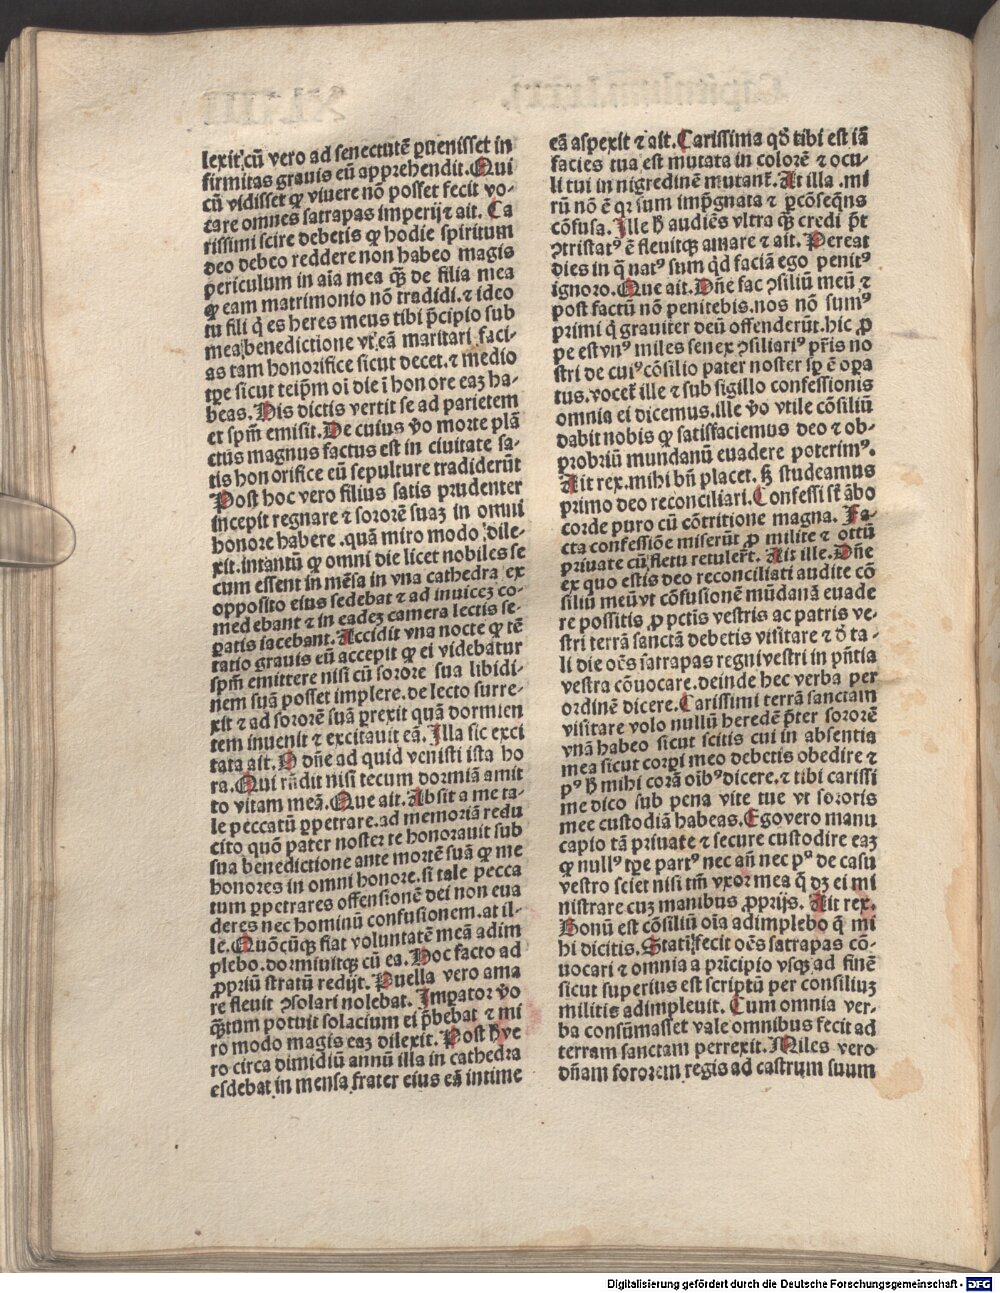 lexit;cū vero ad senectutē ꝑuenisset in
firmitas grauis eū apprehendit. Qui
cū vidisset ꝙ viuere nō posset fecit vo-
care omnes satrapas imperij ⁊ ait. Ca
rissimi scire debetis ꝙ hodie spiritum
deo debeo reddere non habeo magis
periculum in aīa mea qꝫ̄ de filia mea
ꝙ eam matrimonio nō tradidi. ⁊ ideo
tu fili q̇ es heres meus tibi p̄cipio sub
mea benedictione vt eā maritari faci-
as tam honorifice sicut decet. ⁊ medio
tꝑe sicut teip̄m oi die ī honore eaꝫ ha-
beas. His dictis vertit se ad parietem
et spm̄ emisit. De cuius v̄o morte plā
ctus magnus factus est in ciuitate sa-
tis honorifice eū sepulture tradiderūt
Post hoc vero filius satis prudenter
incepit regnare ⁊ sororē suaꝫ in omni
honore habere .quā miro modo dile-
xit. intantū ꝙ omni die licet nobiles se
cum essent in mēsa in vna cathedra ex
opposito eius sedebat ⁊ ad inuiceꝫ co-
medebant ⁊ in eadeꝫ camera lectis se-
ꝑatis iacebant. Accidit vna nocte ꝙ tē
tatio grauis eū accepit ꝙ ei videbatur
spm̄ emittere nisi cū sorore sua libidi-
nem suā posset implere. de lecto surre-
xit ⁊ ad sororē suā ꝑrexit quā dormien
tem inuenit ⁊ excitauit eā. Illa sic exci
tata ait. O dn̄e ad quid venisti ista ho
ra. Qui rn̄dit nisi tecum dormiā amit
to vitam meā. Que ait. Absit a me ta-
le peccatū ꝑpetrare. ad memoriā redu
cito quō pater noster te honorauit sub
sua benedictione ante mortē suā ꝙ me
honores in omni honore. si tale pecca
tum ꝑpetrares offensionē dei non eua
deres nec hominū confusionem. at il-
le. Quōcūqꝫ fiat voluntatē meā adim
plebo. dormiuitqꝫ cū ea. Hoc facto ad
ꝓpriū stratū redijt. Puella vero ama
re fleuit ꝯsolari nolebat. Imꝑator v̄o
qꝫ̄tum potuit solacium ei p̄bebat ⁊ mi
ro modo magis eaꝫ dilexit. Post h̄ ve
ro circa dimidiū annū illa in cathedra
esdebat in mensa frater eius eā intime
eā aspexit ⁊ ait. Carissima qđ tibi est iā
facies tua est mutata in colorē ⁊ ocu-
li tui in nigredinē mutant̄. At illa .mi
rū nō ē qꝛ sum imp̄gnata ⁊ ꝑcōseq̄ns
cōfusa. Ille h̄ audiēs vltra qꝫ̄ credi p̄t
ꝯtristatꝰ ē fleuitqꝫ amare ⁊ ait. Pereat
dies in q̄ natꝰ sum qͥd faciā ego penitꝰ
ignoro. Que ait. Dn̄e fac ꝯsiliū meū ⁊
post factū nō penitebis. nos nō sumꝰ
primi q̇ grauiter deū offenderūt. hic ꝓ
pe est vnꝰ miles senex ꝯsiliariꝰ pr̄is no
stri de cuiꝰ cōsilio pater noster sꝑ ē oꝑa
tus. vocet̄ ille ⁊ sub sigillo confessionis
omnia ei dicemus. ille v̄o vtile cōsiliū
dabit nobis ꝙ satisfaciemus deo ⁊ ob-
probriū mundanū euadere poterimꝰ.
Ait rex. mihi bn̄ placet. sꝫ studeamus
primo deo reconciliari. Confessi sт̄ ābo
corde puro cū cōtritione magna. Fa-
cta confessiōe miserūt ꝓ milite ⁊ oī̄a
priuate cū fletu retulert̄. Ait ille. Dn̄e
ex quo estis deo reconciliati audite cō
siliū meū vt cōfusionē mūdanā euade
re possitis ꝓ pctīs vestris ac patris ve-
stri terrā sanctā debetis visitare ⁊ đ ta-
li die oēs satrapas regni vestri in pn̄tia
vestra cōuocare. deinde hec verba per
ordinē dicere. Carissimi terrā sanctam
visitare volo nullū heredē p̄ter sororē
vnā habeo sicut scitis cui in absentia
mea sicut corꝑi meo debetis obedire ⁊
pꝰ h̄ mihi corā oībꝰ dicere. ⁊ tibi carissi
me dico sub pena vite tue vt sororis
mee custodiā habeas. Ego vero manu
capio tā priuate ⁊ secure custodire eaꝫ
ꝙ nullꝰ tꝑe partꝰ nec an̄ nec pꝰ de casu
vestro sciet nisi tm̄ vxor mea q̄ dꝫ ei mi
nistrare cuꝫ manibus ꝓprijs. Ait rex.
Bonū est cōsiliū oīa adimplebo q̄ mi
hi dicitis. Statī fecit oēs satrapas cō-
uocari ⁊ omnia a prīcipio vsqꝫ ad finē
sicut superius est scriptū per consiliuꝫ
militis adimpleuit. Cum omnia ver-
ba consūmasset vale omnibus fecit ad
terram sanctam perrexit. Miles vero
dn̄am sororem regis ad castrum suum
Digitalisierung gefördert durch die Deutsche Forschungsgemeinschaft - DFG